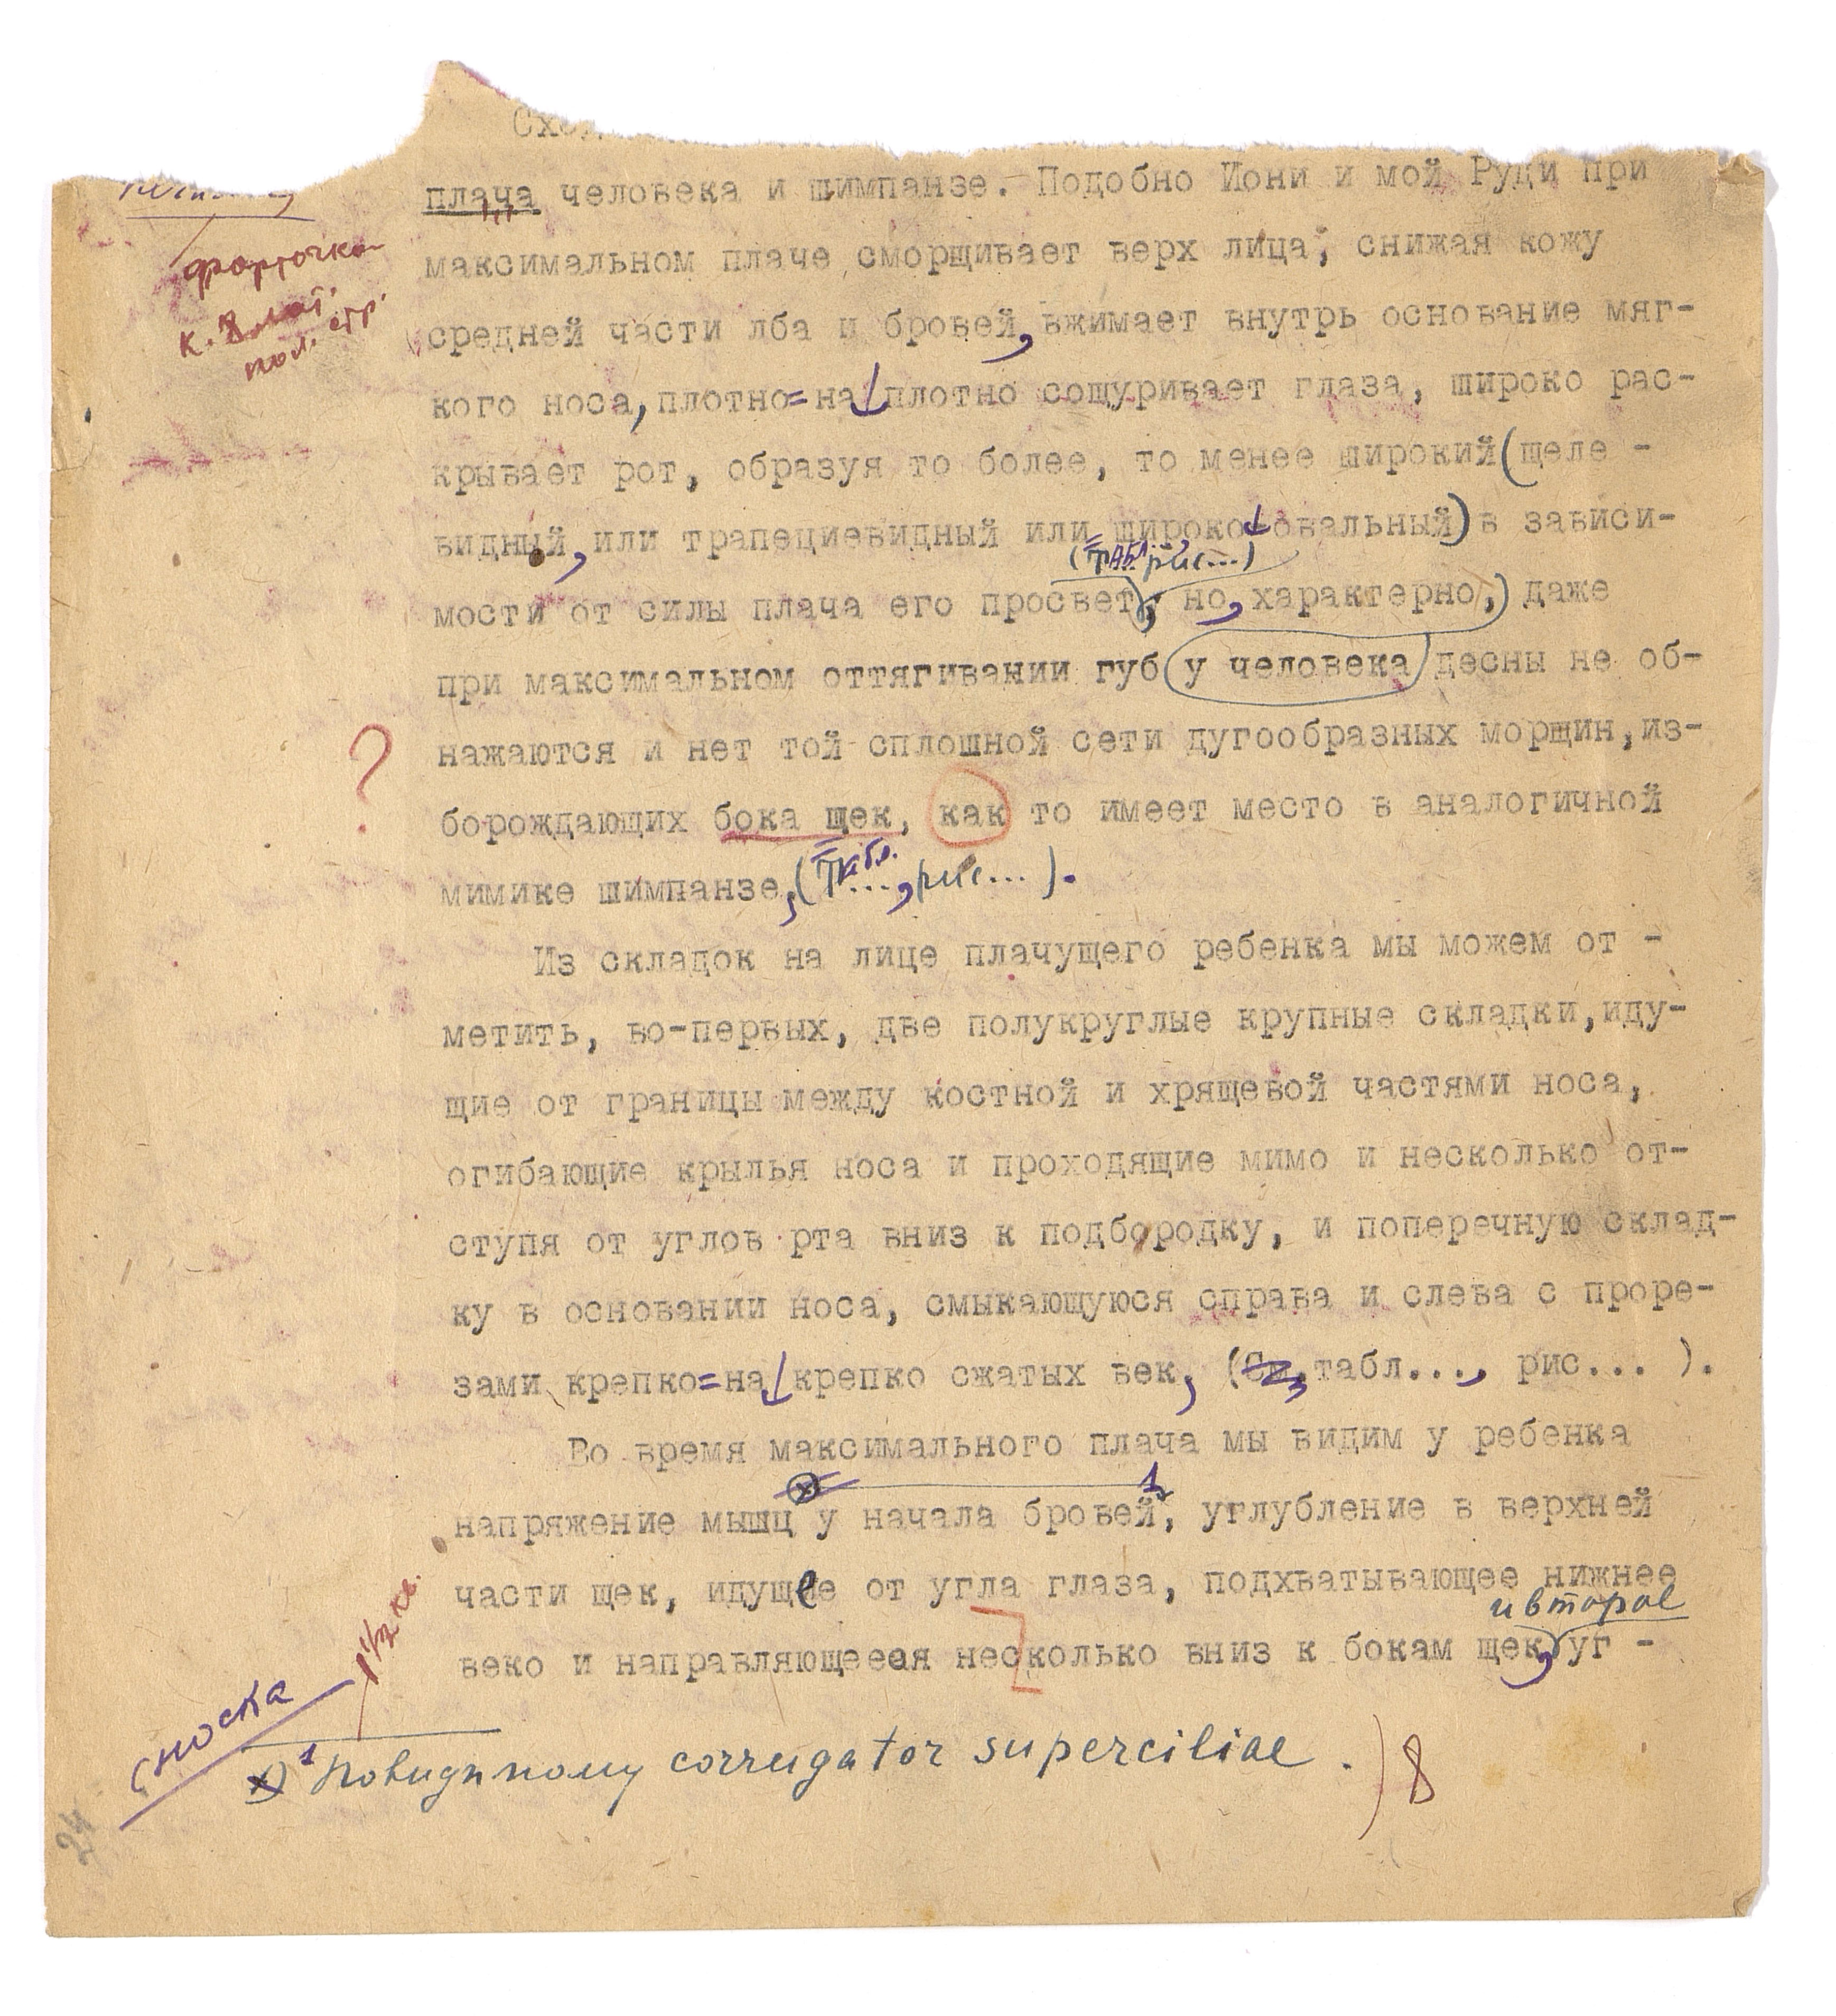 плача человека и шимпанзе. Подобно Иони и мой Руди при
форточка
максимальном плаче сморщивает верх лица, снижая кожу
к. 8
средней части лба и бровей, вжимает внутрь основание мяг-
кого носа, плотно=на плотно сощуривает глаза, широко рас-
крывает рот, образуя то более, то менее широкий (щеле -
видный, или трапециевидный или широко овальный) в зависи-
(Табл... рис...)
мости от силы плача его просвет, но, характерно,) даже
при максимальном оттягивании губ (у человека) десны не об-
нажаются и нет той сплошной сети дугообразных морщин, из-
?
борождающих бока щек, как то имеет место в аналогичной
мимике шимпанзе, (Табл..., рис...).
Из складок на лице плачущего ребенка мы можем от -
метить, во-первых, две полукруглые крупные складки, иду-
щие от границы между костной и хрящевой частями носа,
огибающие крылья носа и проходящие мимо и несколько от-
ступя от углов рта вниз к подбородку, и поперечную склад-
ку в основании носа, смыкающуюся справа и слева с проре-
зами крепко=на крепко сжатых век, (См, табл..., рис... ).
Во время максимального плача мы видим у ребенка
напряжение мышц у начала бровей, 1) углубление в верхней
части щек, идущее от угла глаза, подхватывающее нижнее
и второе
веко и направляющееся несколько вниз к бокам щек, уг -
сноска
1 1/2 кв.
х) 1 Повидимому corrugator superciliae. ) 8
24